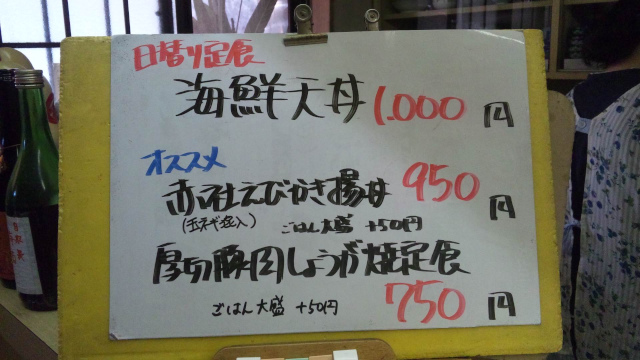 日替り定食
海鮮天丼 1.000円
オススメ
赤社えびかき揚丼 950円
(玉ネギ込入) ごはん大盛 +50円
厚切豚肉しょうが焼定食
ごはん大盛 +50円 750円